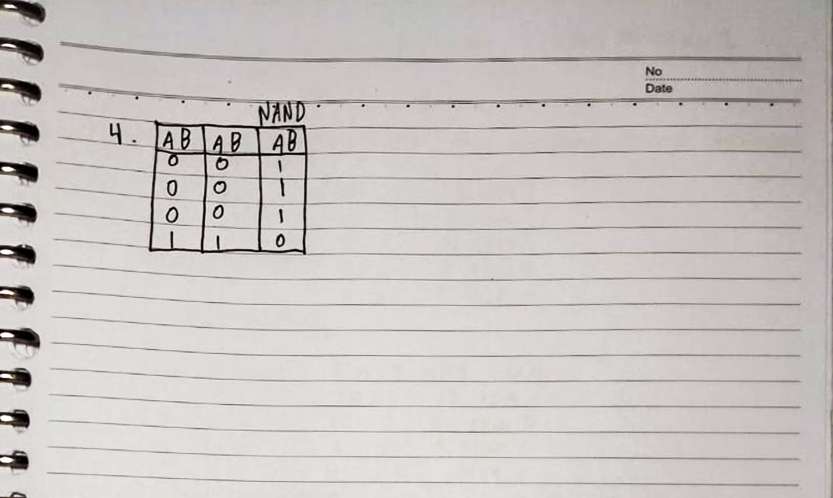 No
Date
NAND
4. AB AB AB
0 0 1
0 0 1
0 0 1
1 1 0